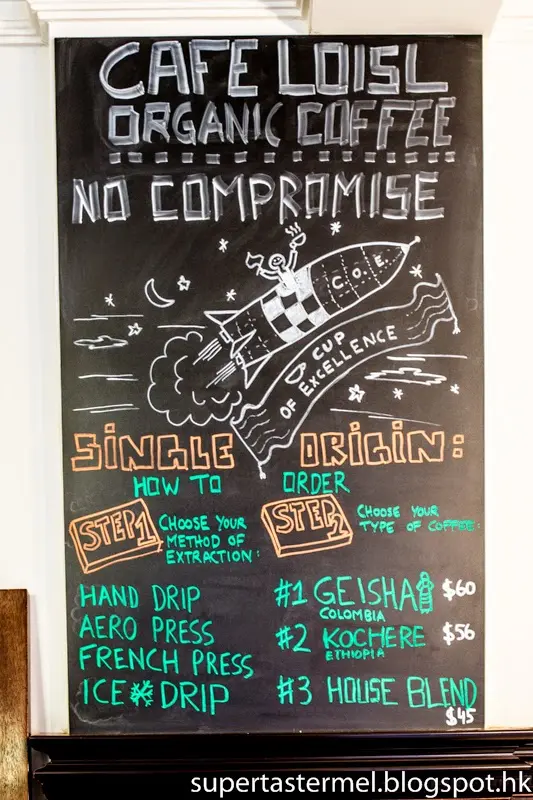 CAFE LOISL
ORGANIC COFFEE
NO COMPROMISE
C.O.E.
CUP
OF EXCELLENCE
SINGLE ORIGIN:
HOW TO ORDER
STEP 1
CHOOSE YOUR
METHOD OF
EXTRACTION:
HAND DRIP
AERO PRESS
FRENCH PRESS
ICE DRIP
STEP 2
CHOOSE YOUR
TYPE OF COFFEE:
#1 GEISHA $60
COLOMBIA
#2 KOCHERE $56
ETHIOPIA
#3 HOUSE BLEND
$45
supertastermel.blogspot.hk